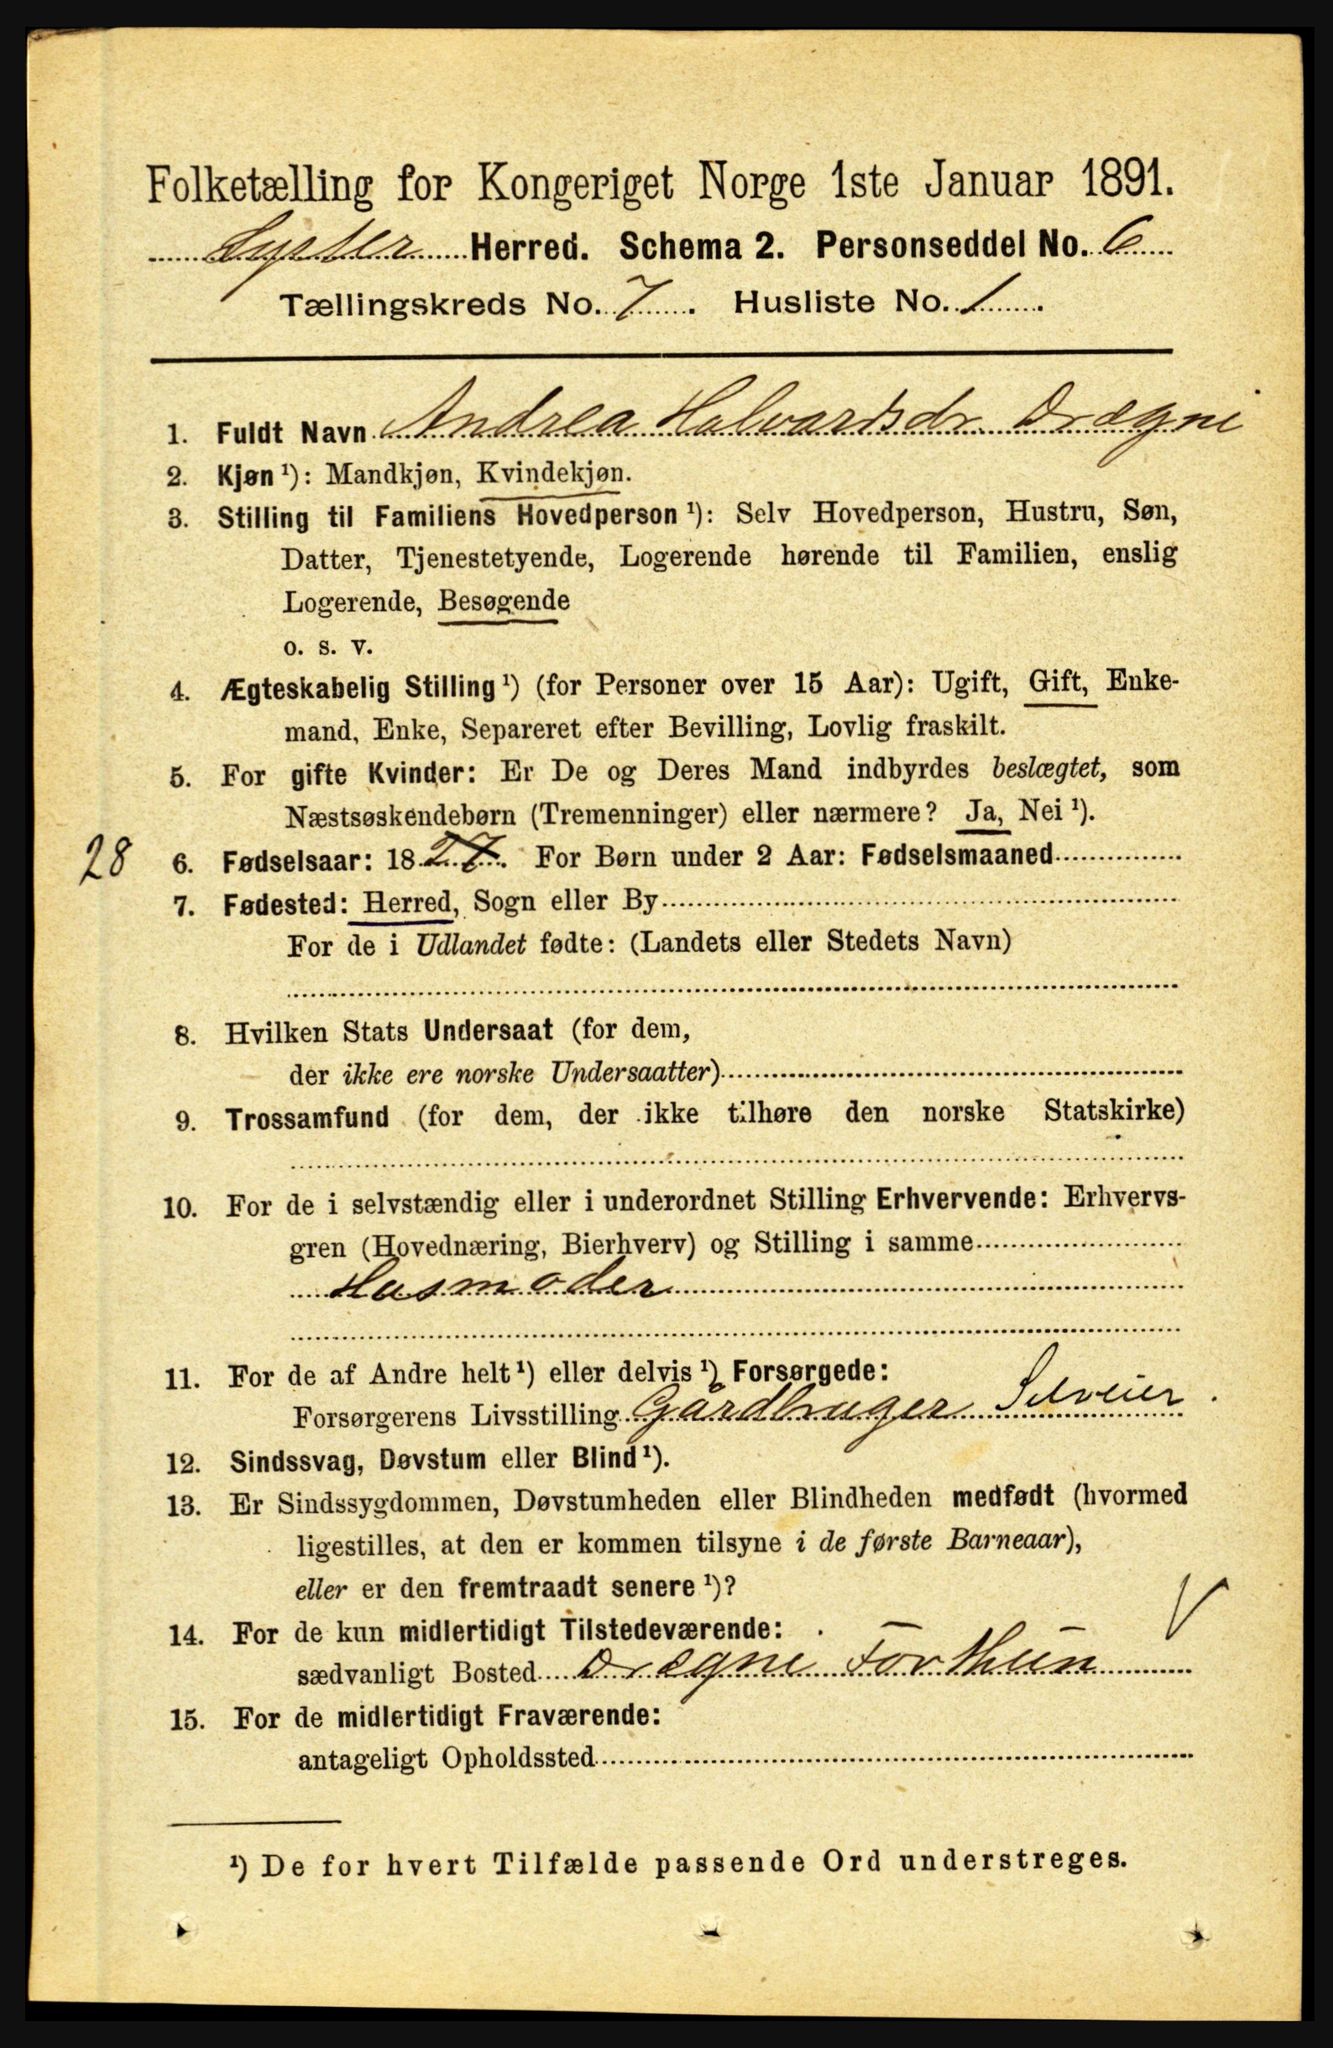 Folketælling for Kongeriget Norge 1ste Januar 1891.
Lyster Herred. Schema 2. Personseddel No. 6
Tællingskreds No. 7. Husliste No. 1.
1. Fuldt Navn Andrea Halvardsdr. Drægni
2. Kjøn ¹): Mandkjøn, Kvindekjøn.
3. Stilling til Familiens Hovedperson ¹): Selv Hovedperson, Hustru, Søn,
Datter, Tjenestetyende, Logerende hørende til Familien, enslig
Logerende, Besøgende
o. s. v.
4. Ægteskabelig Stilling ¹) (for Personer over 15 Aar): Ugift, Gift, Enke-
mand, Enke, Separeret efter Bevilling, Lovlig fraskilt.
5. For gifte Kvinder: Er De og Deres Mand indbyrdes beslægtet, som
Næstsøskendebørn (Tremenninger) eller nærmere? Ja, Nei ¹).
28 6. Fødselsaar: 1827. For Børn under 2 Aar: Fødselsmaaned
7. Fødested: Herred, Sogn eller By
For de i Udlandet fødte: (Landets eller Stedets Navn)
8. Hvilken Stats Undersaat (for dem,
der ikke ere norske Undersaatter)
9. Trossamfund (for dem, der ikke tilhøre den norske Statskirke)
10. For de i selvstændig eller i underordnet Stilling Erhvervende: Erhvervs-
gren (Hovednæring, Bierhverv) og Stilling i samme
Husmoder
11. For de af Andre helt ¹) eller delvis ¹) Forsørgede:
Forsørgerens Livsstilling Gårdbruger Selveier.
12. Sindssvag, Døvstum eller Blind ¹).
13. Er Sindssygdommen, Døvstumheden eller Blindheden medfødt (hvormed
ligestilles, at den er kommen tilsyne i de første Barneaar),
eller er den fremtraadt senere ¹)?
14. For de kun midlertidigt Tilstedeværende:
sædvanligt Bosted Drægne Forthun
15. For de midlertidigt Fraværende:
antageligt Opholdssted
¹) De for hvert Tilfælde passende Ord understreges.